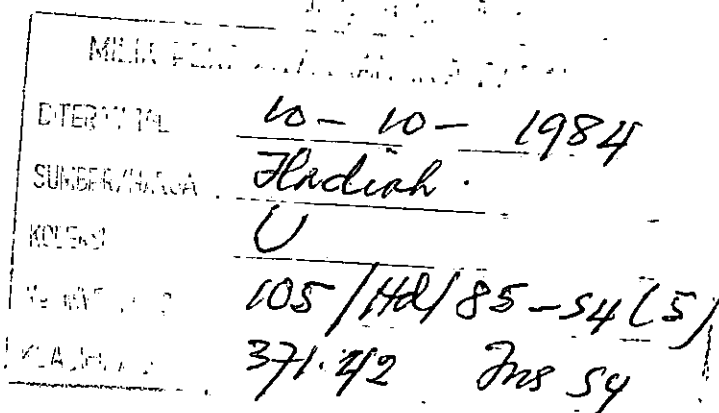 MILIK
DITERIMA TGL 10 - 10 - 1984
SUMBER/HARGA Hadiah.
KOLEKSI U
105/Hd/85-S4(5)
KLASIFIKASI 371.42 Ins S4